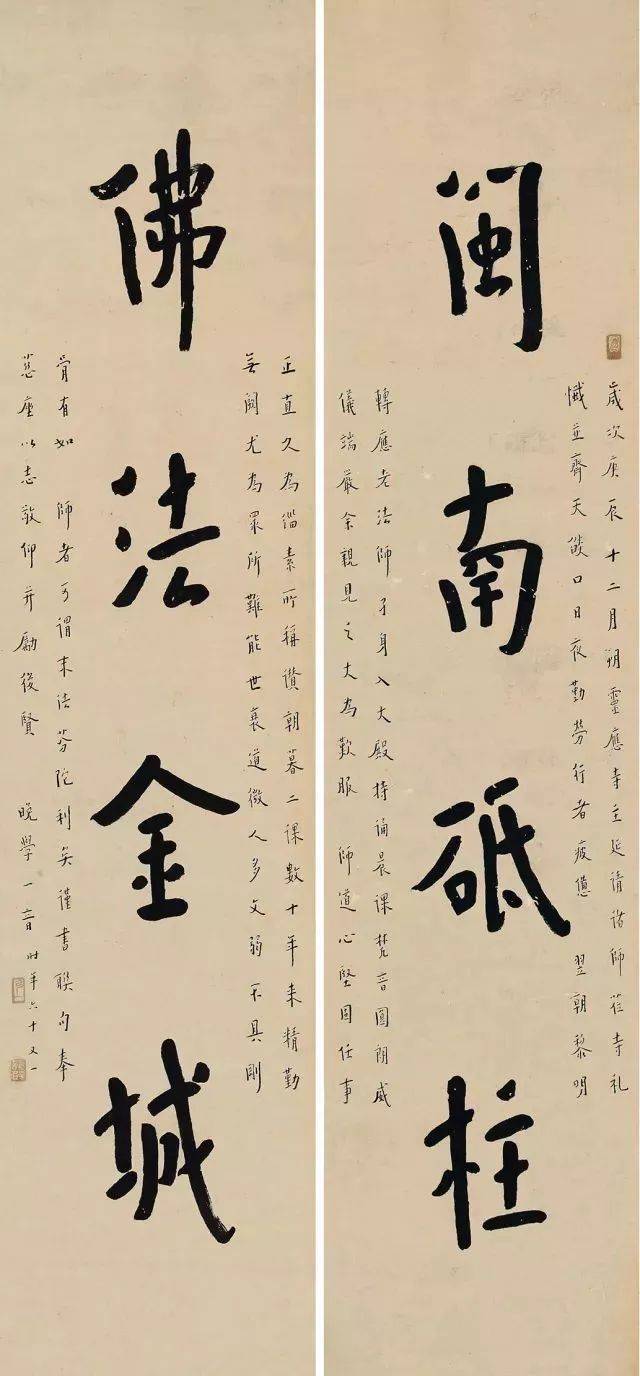 歲次庚辰十二月朔靈應寺主延請諸師蒞寺礼
懺並齊天燄口日夜勤勞行者疲憊 翌朝黎明
閩南砥柱
轉應老法師孑身入大殿持誦晨課梵音圓朗威
儀端嚴余親見之大為歎服 師道心堅固任事
正直久為緇素所稱讚朝暮二課數十年来精勤
無闕尤為眾所難能世衰道微人多文弱不具剛
佛法金城
骨有如 師者可謂末法芬陀利矣謹書聯句奉
慈座以志敬仰并勵後賢 晚學一音時年六十又一